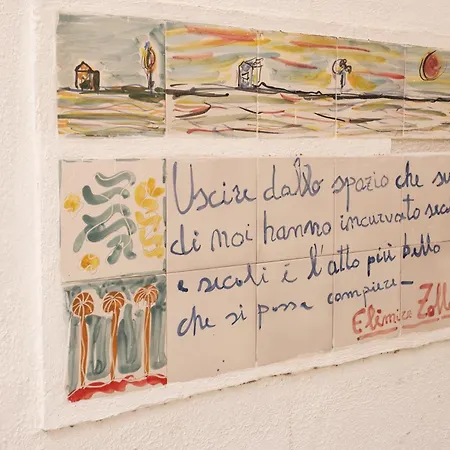 Uscire dallo spazio che su
di noi hanno incurvato seco
e secoli è l'atto più bello
che si possa compiere—
Elimire Zoll